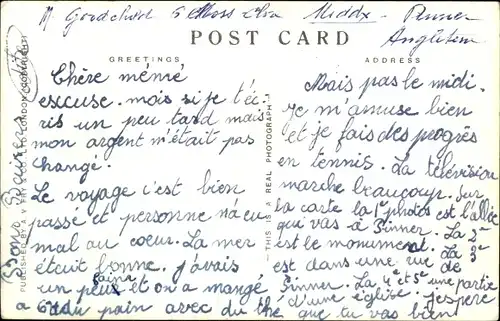 M. Goodchild 5 Moss Middx. Pinner
Angleterre
POST CARD
GREETINGS
ADDRESS
Chère mémé
escuse. mois si je t'éc
ris un peu tard mais
mon argent n'était pas
changé.
Le voyage c'est bien
passé et personne n'a eu
mal au coeur. La mer
était bonne. j'avais
un peux faim et on a mangé
du pain avec du thé
Mais pas le midi.
Je m'amuse bien
et je fais des progrès
en tennis. La télévision
marche beaucoup. Sur
la carte la 1e photos est l'allée
qui vas à Pinner. La 2e
est le monument. La 3e
est dans une rue de
Pinner. La 4e et 5e une partie
d'une église. j'espère
que tu vas bien
Bons Baisers
THIS IS A REAL PHOTOGRAPH